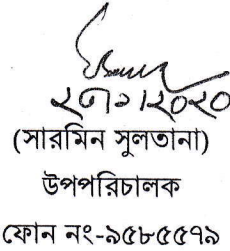 ২৩।১।২০২০
(সারমিন সুলতানা)
উপপরিচালক
ফোন নং-৯৫৮৫৫৭৯